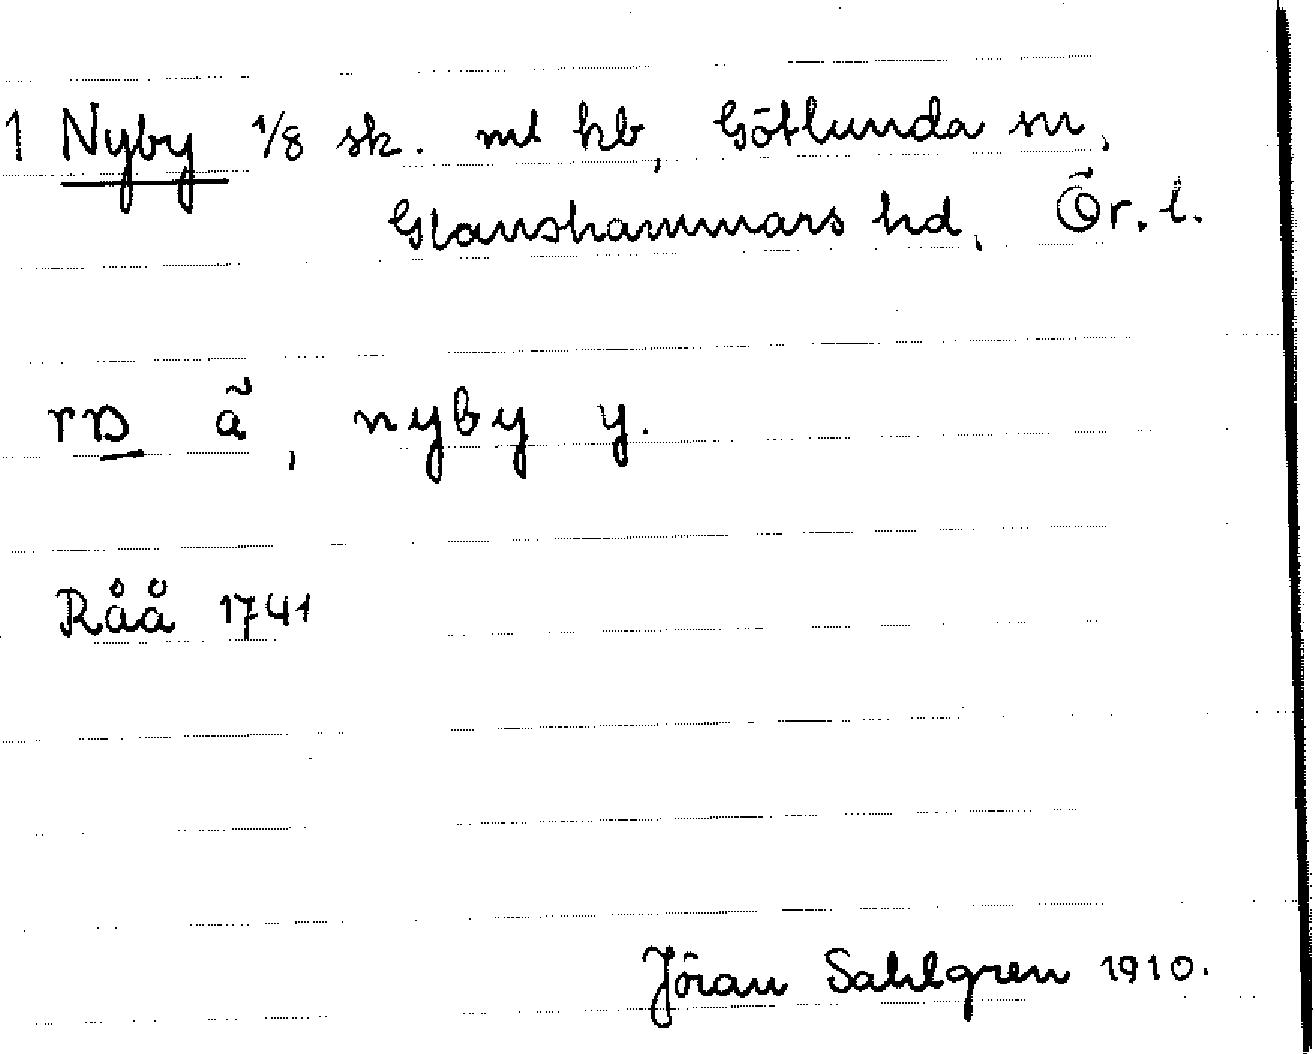 1 Nyby 1/8 sk. mt hb, Götlunda sn,
Glanshammars hd, Ör. l.
nyby y.
Råå 1741
Jöran Sahlgren 1910.